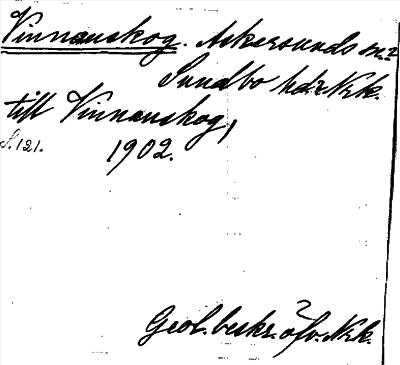 Vinnanskog. Askersunds sn?
Sundbo hd? Nrk.
till Vinnanskog,
S. 121. 1902.
Geol. beskr. öfv. Nrk.